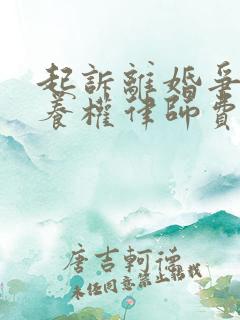 起訴離婚爭
養權律師費
唐吉軻德
未经同意禁止轉载